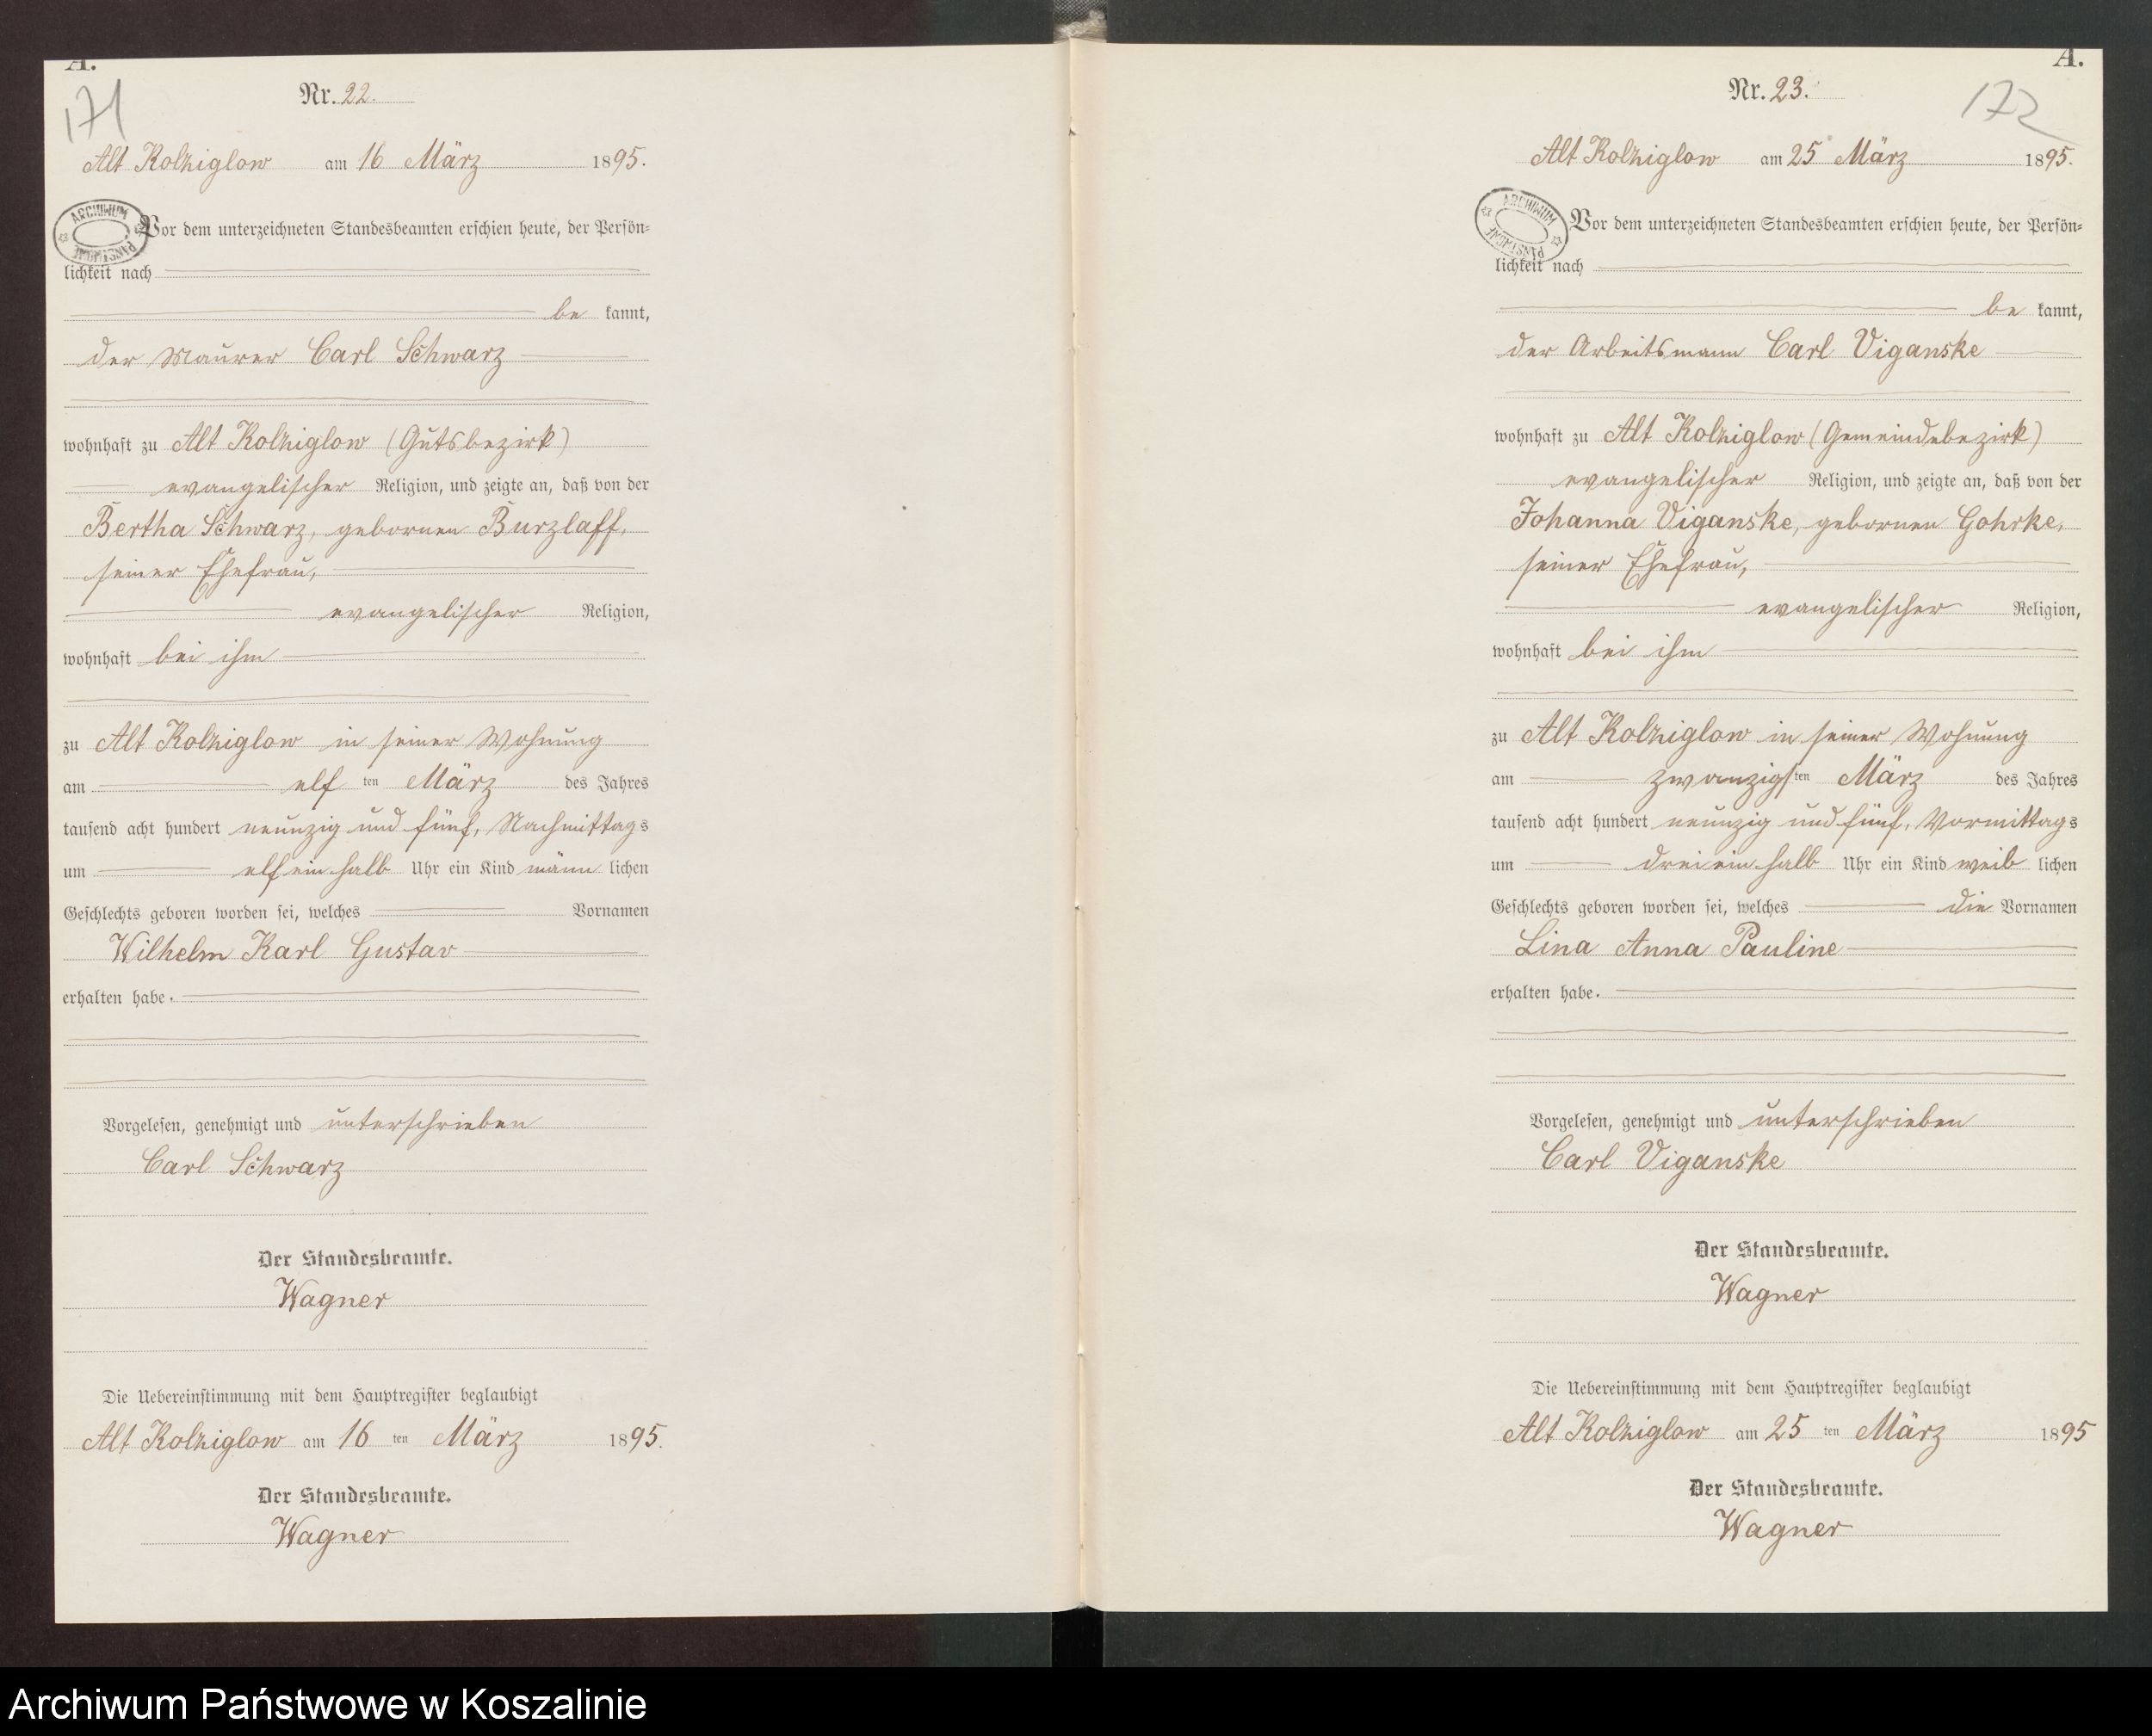 A.
171
Nr. 22.
Alt Kolziglow am 16 März 1895.
ARCHIWUM PAŃSTWOWE
Vor dem unterzeichneten Standesbeamten erschien heute, der Persön-
lichkeit nach
be kannt,
der Maurer Carl Schwarz
wohnhaft zu Alt Kolziglow (Gutsbezirk)
evangelischer Religion, und zeigte an, daß von der
Bertha Schwarz, gebornen Burzlaff,
seiner Ehefrau,
evangelischer Religion,
wohnhaft bei ihm
zu Alt Kolziglow in seiner Wohnung
am elf ten März des Jahres
tausend acht hundert neunzig und fünf, Nachmittags
um elf ein halb Uhr ein Kind männ lichen
Geschlechts geboren worden sei, welches Vornamen
Wilhelm Karl Gustav
erhalten habe.
Vorgelesen, genehmigt und unterschrieben
Carl Schwarz
Der Standesbeamte.
Wagner
Die Uebereinstimmung mit dem Hauptregister beglaubigt
Alt Kolziglow am 16 ten März 1895.
Der Standesbeamte.
Wagner
A.
172
Nr. 23.
Alt Kolziglow am 25 März 1895.
ARCHIWUM PAŃSTWOWE
Vor dem unterzeichneten Standesbeamten erschien heute, der Persön-
lichkeit nach
be kannt,
der Arbeitsmann Carl Viganske
wohnhaft zu Alt Kolziglow (Gemeindebezirk)
evangelischer Religion, und zeigte an, daß von der
Johanna Viganske, gebornen Gohrke,
seiner Ehefrau,
evangelischer Religion,
wohnhaft bei ihm
zu Alt Kolziglow in seiner Wohnung
am zwanzigs ten März des Jahres
tausend acht hundert neunzig und fünf, Vormittags
um drei ein halb Uhr ein Kind weib lichen
Geschlechts geboren worden sei, welches die Vornamen
Lina Anna Pauline
erhalten habe.
Vorgelesen, genehmigt und unterschrieben
Carl Viganske
Der Standesbeamte.
Wagner
Die Uebereinstimmung mit dem Hauptregister beglaubigt
Alt Kolziglow am 25 ten März 1895
Der Standesbeamte.
Wagner
Archiwum Państwowe w Koszalinie